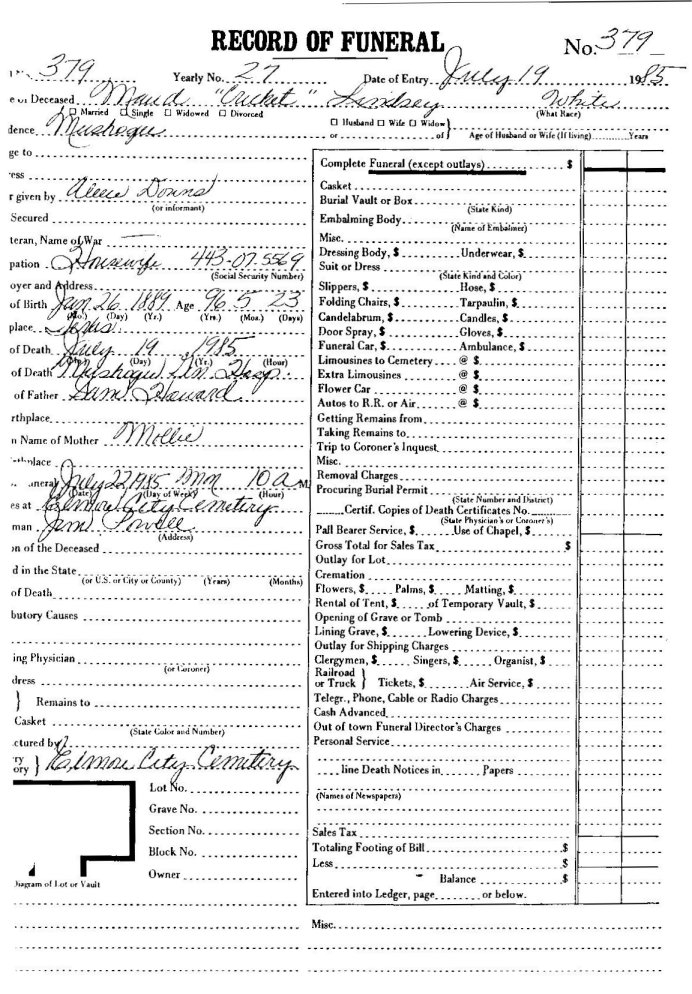 RECORD OF FUNERAL
No. 379
379 Yearly No. 27 Date of Entry July 19 1985
Deceased Maud "Cricket" Lindsey White
☐ Married ☐ Single ☐ Widowed ☐ Divorced (What Race)
dence Muskogee ☐ Husband ☐ Wife ☐ Widow }
or of } Age of Husband or Wife (If living) Years
ge to
ess
r given by Downs
(or informant)
Secured
teran, Name of War —
pation Housewife 443-07-5569
(Social Security Number)
oyer and Address
of Birth Jan 26 1889 Age 96 5 23
(Mo.) (Day) (Yr.) (Yrs.) (Mos.) (Days)
place Texas
of Death July 19 1985
(Day) (Yr.) (Hour)
of Death Muskogee Gen Hosp.
of Father Sam Howard
rthplace
n Name of Mother Mollie
thplace
uneral July 22, 1985 Mon 10 a M
(Date) (Day of Week) (Hour)
es at Elmore City Cemetery
man Jim Powell
(Address)
on of the Deceased
d in the State
(or U.S. or City or County) (Years) (Months)
of Death
butory Causes
ing Physician
(or Coroner)
dress
} Remains to
Casket
(State Color and Number)
ctured by
ry
ory } Elmore City Cemetery
Lot No.
Grave No.
Section No.
Block No.
Owner
Diagram of Lot or Vault
Complete Funeral (except outlays) $
Casket
Burial Vault or Box
(State Kind)
Embalming Body
(Name of Embalmer)
Misc.
Dressing Body, $ Underwear, $
Suit or Dress
(State Kind and Color)
Slippers, $ Hose, $
Folding Chairs, $ Tarpaulin, $
Candelabrum, $ Candles, $
Door Spray, $ Gloves, $
Funeral Car, $ Ambulance, $
Limousines to Cemetery @ $
Extra Limousines @ $
Flower Car @ $
Autos to R.R. or Air @ $
Getting Remains from
Taking Remains to
Trip to Coroner's Inquest
Misc.
Removal Charges
Procuring Burial Permit
(State Number and District)
Certif. Copies of Death Certificates No.
(State Physician's or Coroner's)
Pall Bearer Service, $ Use of Chapel, $
Gross Total for Sales Tax $
Outlay for Lot
Cremation
Flowers, $ Palms, $ Matting, $
Rental of Tent, $ of Temporary Vault, $
Opening of Grave or Tomb
Lining Grave, $ Lowering Device, $
Outlay for Shipping Charges
Clergymen, $ Singers, $ Organist, $
Railroad }
or Truck } Tickets, $ Air Service, $
Telegr., Phone, Cable or Radio Charges
Cash Advanced
Out of town Funeral Director's Charges
Personal Service
line Death Notices in Papers
(Names of Newspapers)
Sales Tax
Totaling Footing of Bill $
Less $
Balance $
Entered into Ledger, page or below.
Misc.